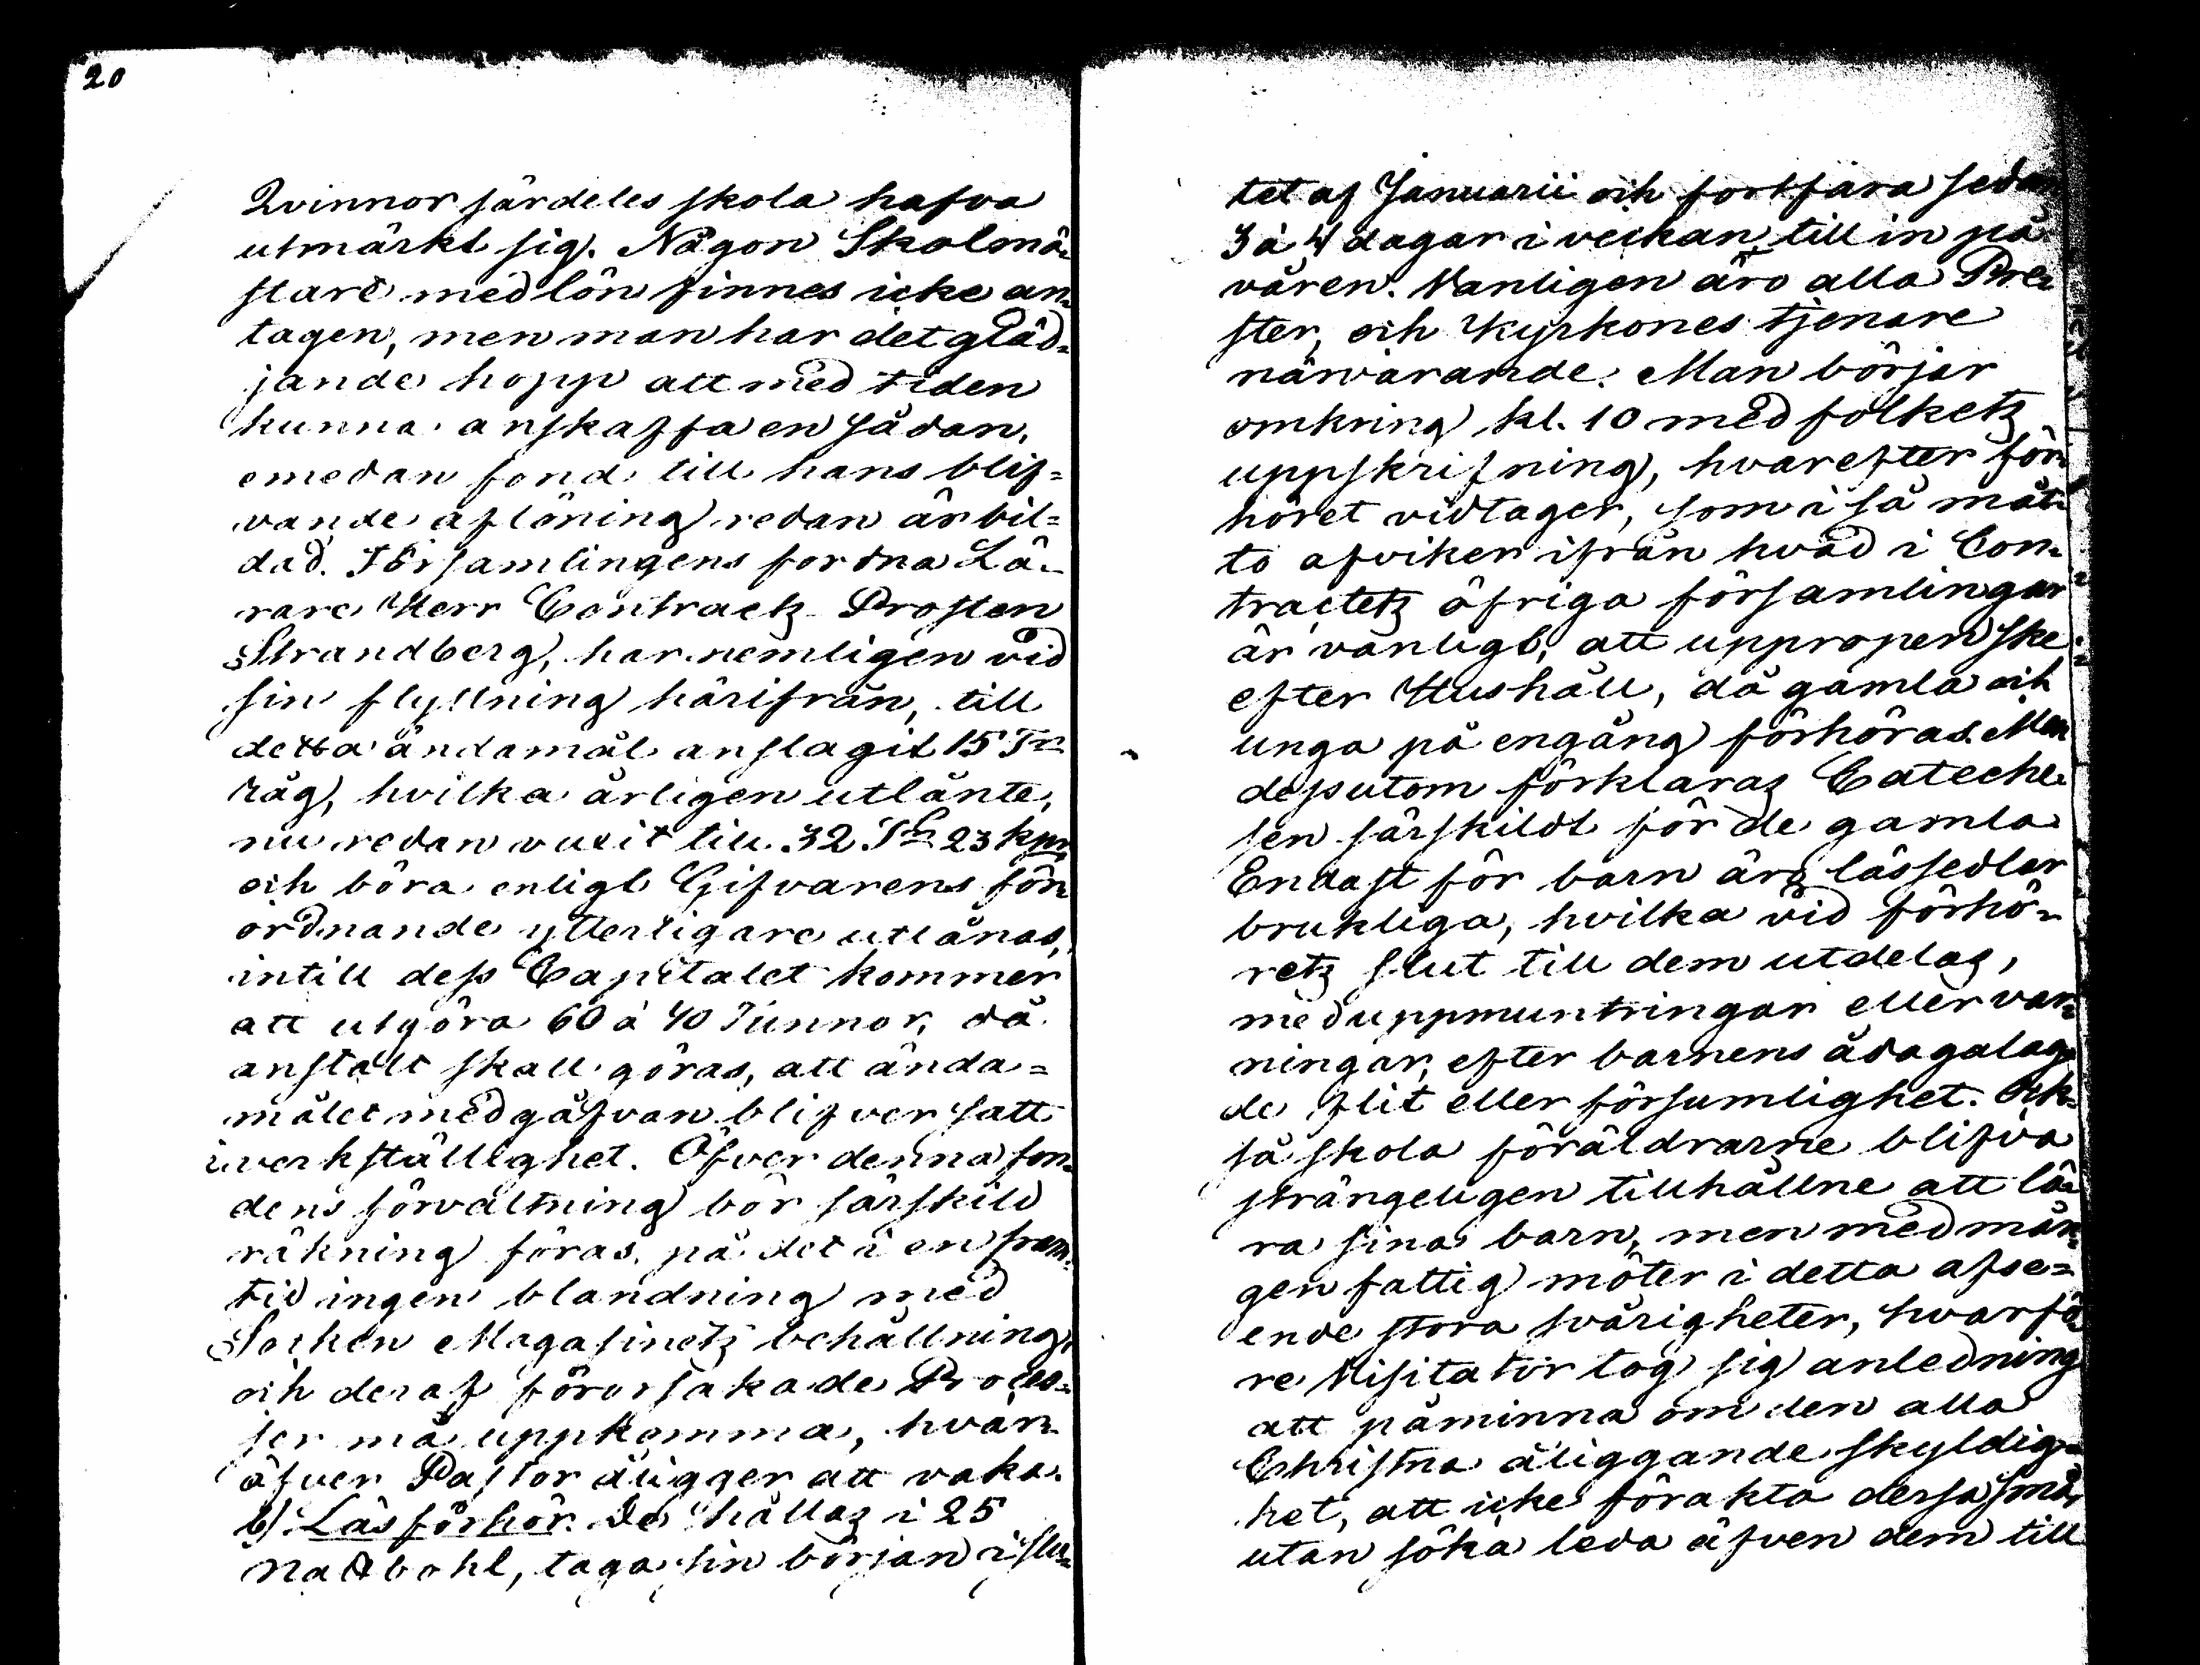 20
Qvinnor särdeles skola hafva
utmärkt sig. Någon Skolmä-
stare med lön finnes icke an-
tagen, men man har det gläd-
jande hopp att med tiden
kunna anskaffa en sådan,
emedan fond till hans blif=
vande aflöning redan är bil=
dad. Församlingens fordna Lä-
rare Herr Contractz Prosten
Strandberg, har nemligen vid
sin flyttning härifrån, till
detta ändamål anslagit 15 Tr
råg, hvilka årligen utlänte,
nu redan vuxit till 32 Tr 23 kpr
och böra enligt Gifvarens för
ordnande ytterligare utlånas,
intill dess Capitalet kommer
att utgöra 60 à 40 Tunnor, då
anstalt skall göras, att ända=
målet med gåfvan blifver satt
i verkställighet. Öfver denna fon-
dens förvaltning bör särskild
räkning föras, på det i en fram-
tid ingen blandning med
Socken Magasinetz behållning,
och deraf förorsakade Proces=
ser må uppkomma, hvar-
öfver Pastor åligger att vaka.
b) Läsförhör. De hållas i 25
Nattbohl, taga sin början i slu-
tet af Januarii och fortfara sedan
3 à 4 dagar i veckan, till in på
våren. Vanligen äro alla Pre-
ster, och Kyrkones tjenare
närvarande. Man börjar
omkring kl. 10 med folketz
uppskrifning, hvarefter för-
höret vidtager, som i så måt-
to afviker ifrån hvad i Con-
tractetz öfriga församlingar
är vanligt, att uppropen ske
efter Hushåll, då gamla och
unga på engång förhöras. Men
dessutom förklaras Cateche-
sen särskildt för de gamla
Endast för barn äro lässedlar
brukliga, hvilka vid förhö-
retz slut till dem utdelas,
med uppmuntringar eller var-
ningar, efter barnens ådagalag-
de flit eller försumlighet. Ock-
så skola föräldrarne blifva
strängeligen tillhållne att lä-
ra sina barn, men med mån-
gen fattig möter i detta afse=
ende stora svårigheter, hvarfö-
re Visitator tog sig anledning
att påminna om den alla
Christna åliggande skyldig-
het, att icke förakta dessa små,
utan söka leda äfven dem till